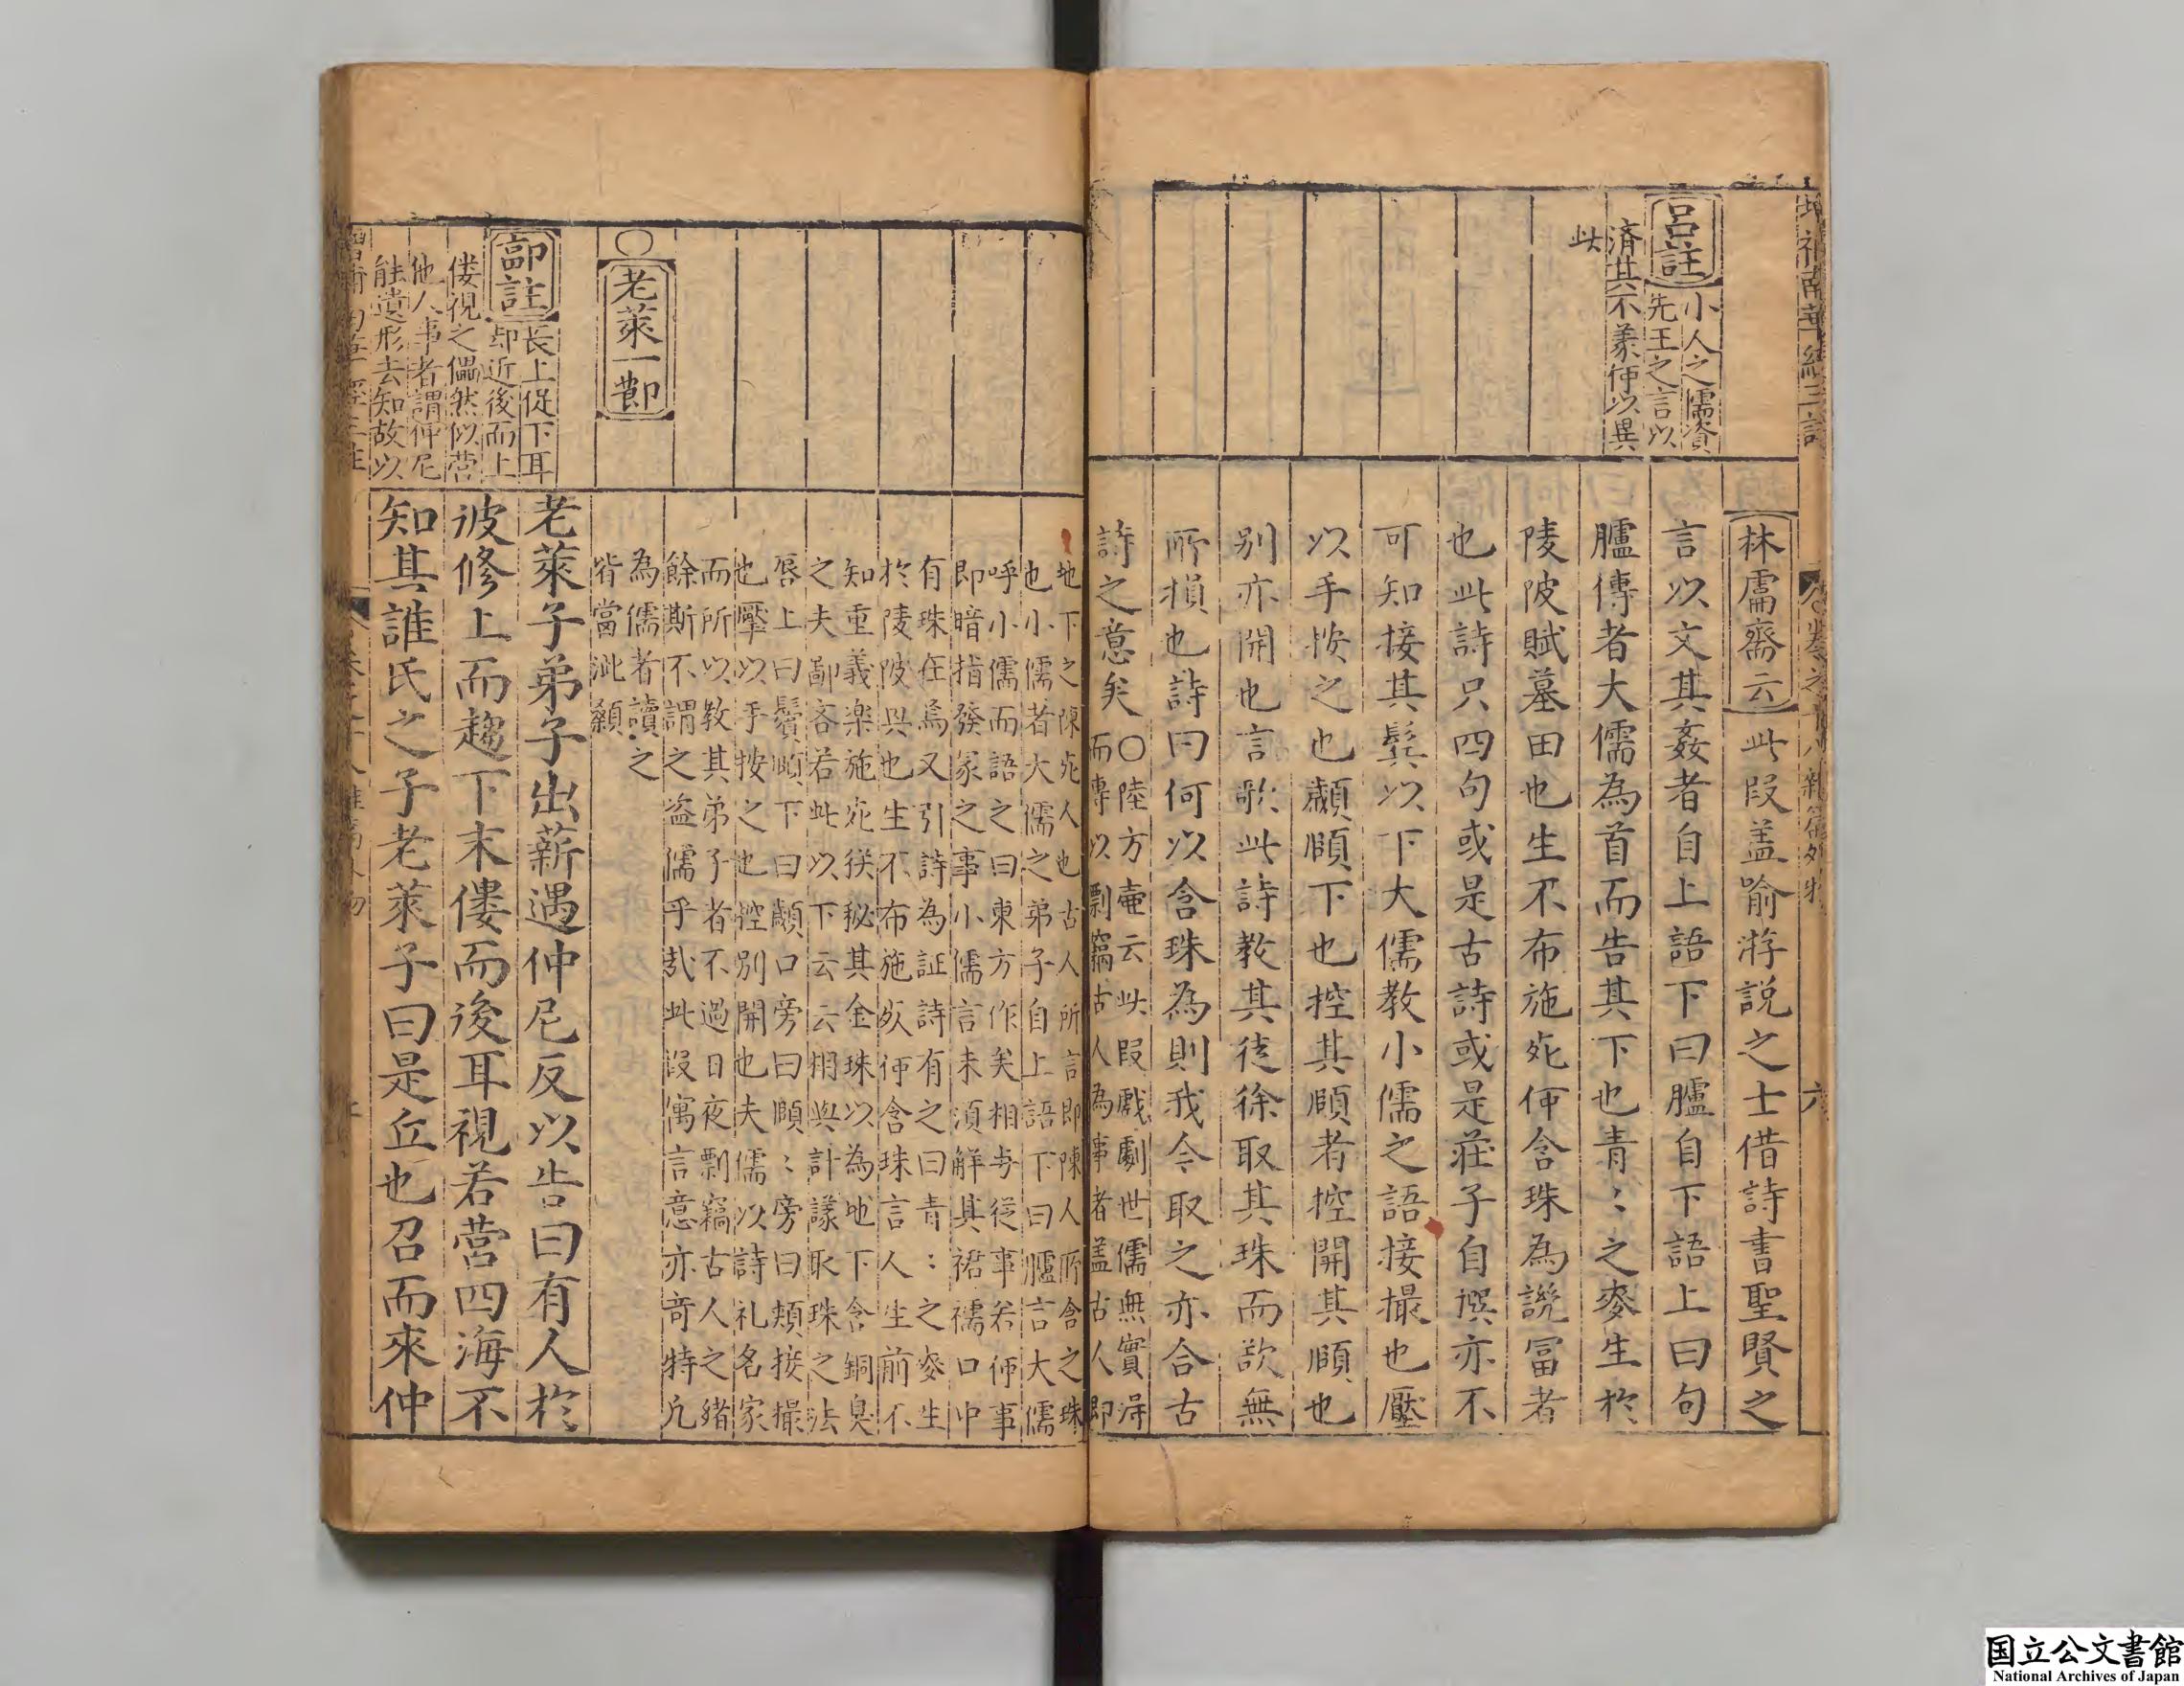 呂註
小人之儒資
先王之言以
済其不義使以異
此
林鬳齋云此段盖喻游説之士借詩書聖賢之
言以文其姦者自上語下曰臚自下語上曰句
臚傳者大儒為首而告其下也青〻之麥生於
陵陂賦墓田也生不布施死何含珠為譏冨者
也此詩只四句或是古詩或是莊子自撰亦不
可知接其鬂以下大儒教小儒之語接撮也壓
以手按之也顪頤下也控其頤者控開其頤也
别亦開也言歌此詩教其徒徐取其珠而欲無
所損也詩曰何以含珠為則我今取之亦合古
詩之意矣
〇陸方壺云此段戲劇世儒無實淂
而專以剽竊古人為事者盖古人即
地下之陳死人也古人所言即陳人所含之珠
也小儒者大儒之弟子自上語下曰臚言大儒
呼小儒而語之曰東方作矣相与從事若何事
即暗指發冢之事小儒言未湏解其裙襦口中
有珠在焉又引詩為証詩有之曰青〻之麥生
於陵陂與也生不布施死何含珠言人生前不
知重義楽施死後秘其金珠以為地下含銅臭
之夫鄙吝若此以下云云相與計議取珠之法
唇上曰鬢頤下曰顪口旁曰頤〻旁曰頰接撮
也壓以手按之也控别開也夫儒以詩礼名家
而所以教其弟子者不過日夜剽竊古人之緒
餘斯不謂之盗儒乎㢤此段寓言意亦竒特凢
為儒者讀之
皆當泚顙
〇老萊一節
郭註
长上促下耳
却近後而上
僂視之儡然似营
他人事者謂仲尼
能遺形去知故以
老萊子弟子出薪遇仲尼反以告曰有人於
彼修上而趨下末僂而後耳視若营四海不
知其誰氏之子老萊子曰是丘也召而來仲
国立公文書館
National Archives of Japan